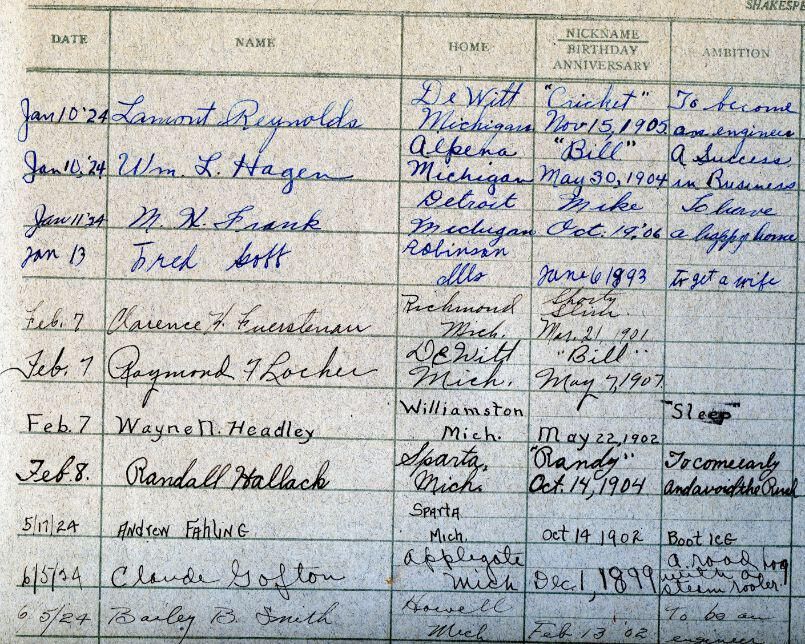 SHAKESPE
DATE NAME HOME NICKNAME BIRTHDAY ANNIVERSARY AMBITION
Jan 10 '24 Lamont Reynolds De Witt Michigan "Cricket" Nov 15, 1905 To become an engineer
Jan 10, '24 Wm. L. Hagen Alpena Michigan "Bill" May 30, 1904 A Success in Business
Jan 11 '24 M. H. Frank Detroit Michigan Mike Oct. 19, '06 To have a happy home
Jan 13 Fred Robinson Ills June 6 1893 to get a wife
Feb. 7 Clarence F. Fuerstenau Richmond Mich. Shorty Mar. 21 1901
Feb. 7 Raymond F Locher De Witt Mich. "Bill" May 7, 1907
Feb. 7 Wayne N. Headley Williamston Mich. May 22, 1902 "Sleep"
Feb. 8. Randall Hallack Sparta, Mich. "Randy" Oct. 14, 1904 To come early and avoid the Rush
5/17/24 Andrew Fahling Sparta Mich. Oct 14 1902 Boot ICE
6/5/24 Claude Gofton Applegate Mich Dec. 1, 1899 a road hog with a steam rooler
6 5/24 Bailey B. Smith Howell Mich Feb 13 '02 To be an